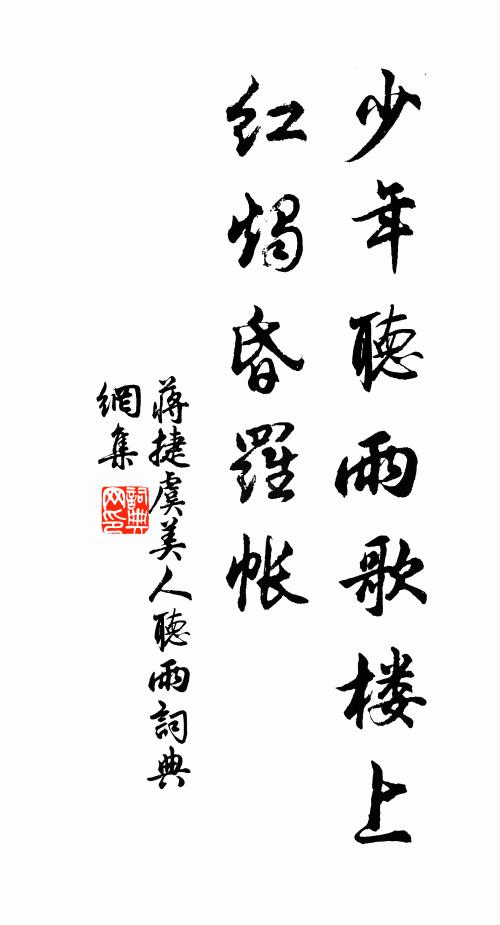 少年聽雨歌楼上
红燭昏羅帐
蔣捷虞美人聽雨詞典
網集
詞典
网印